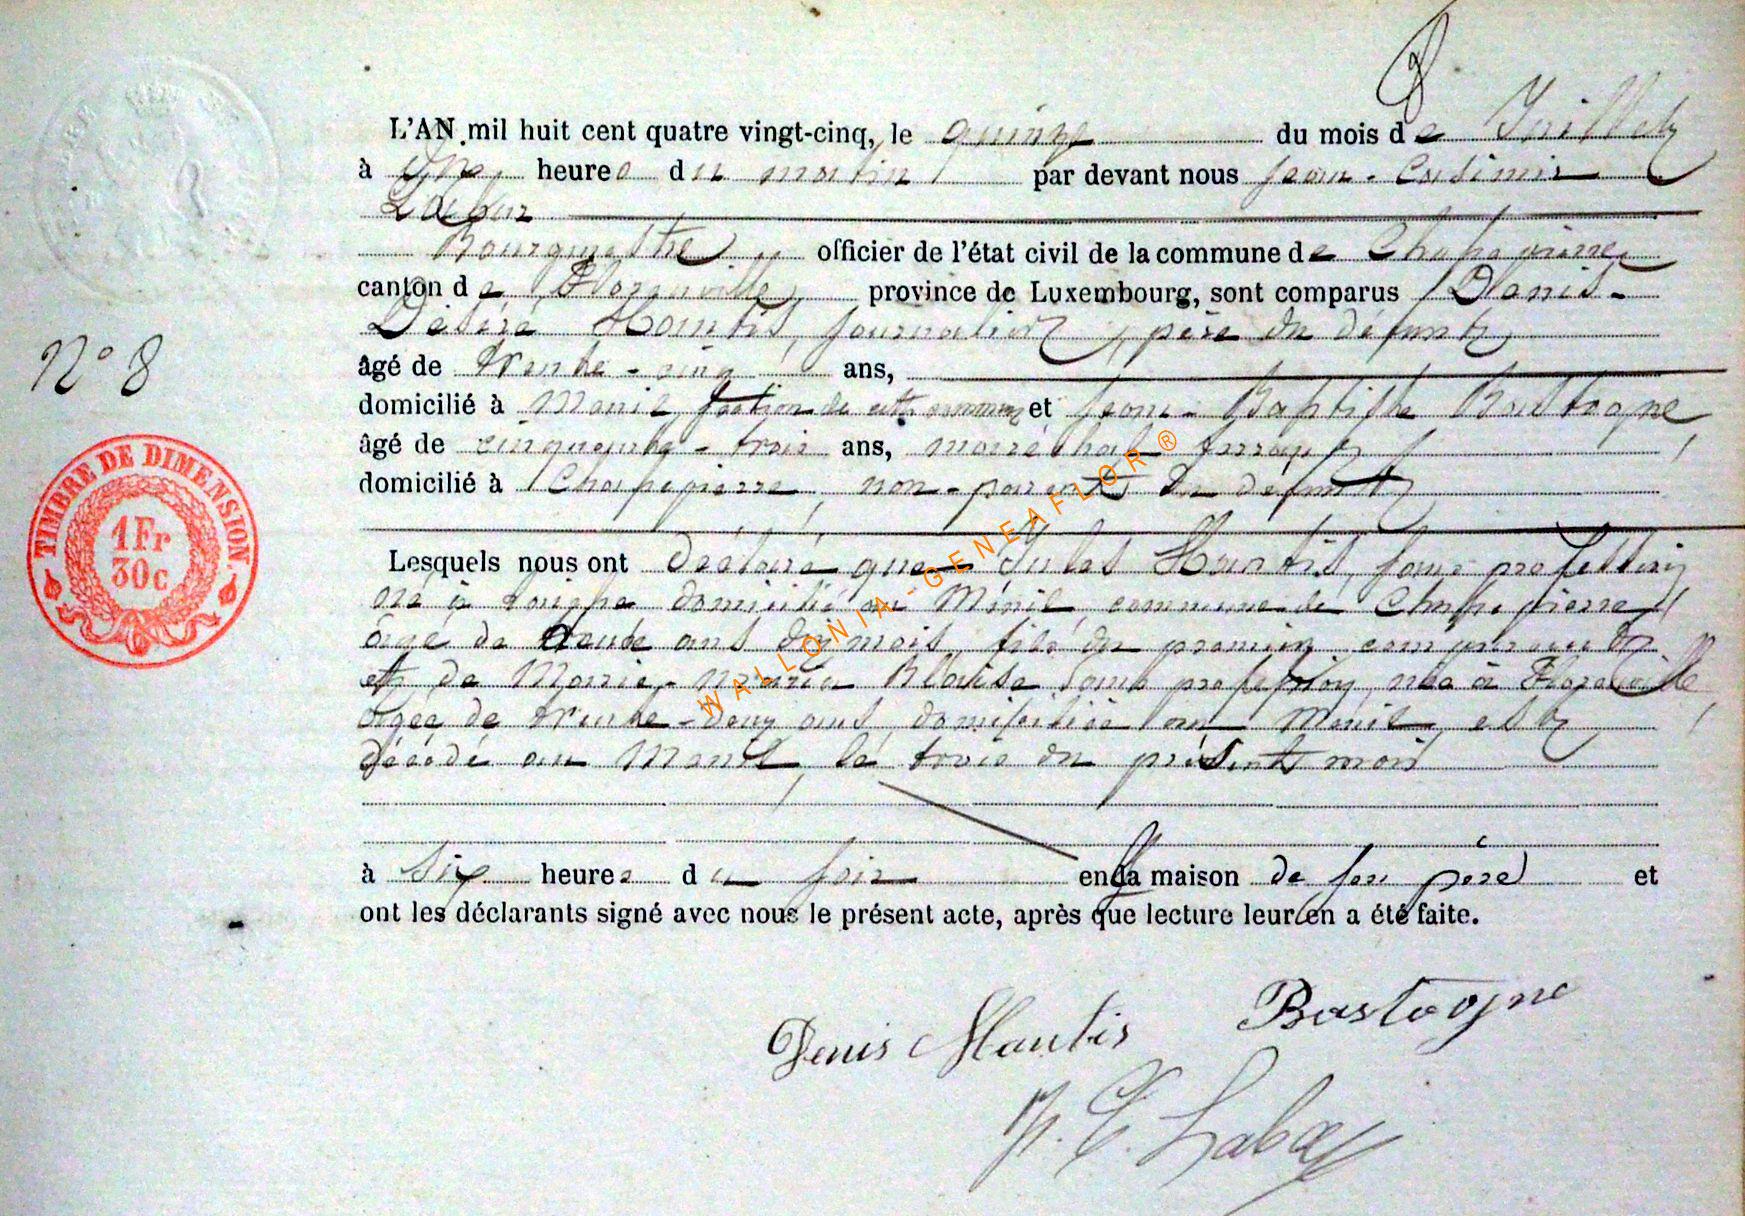 L'AN mil huit cent quatre vingt-cinq, le quinze du mois de Juillet
à heures du matin par devant nous Jean-Casimir
Bourgmestre officier de l'état civil de la commune de Chassepierre
canton de Florenville province de Luxembourg, sont comparus Denis-
Désiré journalier, père du défunt
âgé de trente-cinq ans,
domicilié à Menil, section de cette commune et Jean-Baptiste Bastogne
âgé de cinquante-trois ans, maréchal ferrant
domicilié à Chassepierre, non-parent du défunt
Lesquels nous ont déclaré que Jules sans profession
né à domicilié au Ménil commune de Chassepierre
âgé de ans mois, fils du premier comparant
et de Marie- Blaise sans profession, née à Florenville
âgée de trente-deux ans, domiciliée au Menil est
décédé au Menil, le trois du présent mois
à six heures du soir en la maison de son père et
ont les déclarants signé avec nous le présent acte, après que lecture leur en a été faite.
N° 8
TIMBRE DE DIMENSION.
1Fr
30c
Denis Bastogne
WALLONIA-GENEAFLOR®